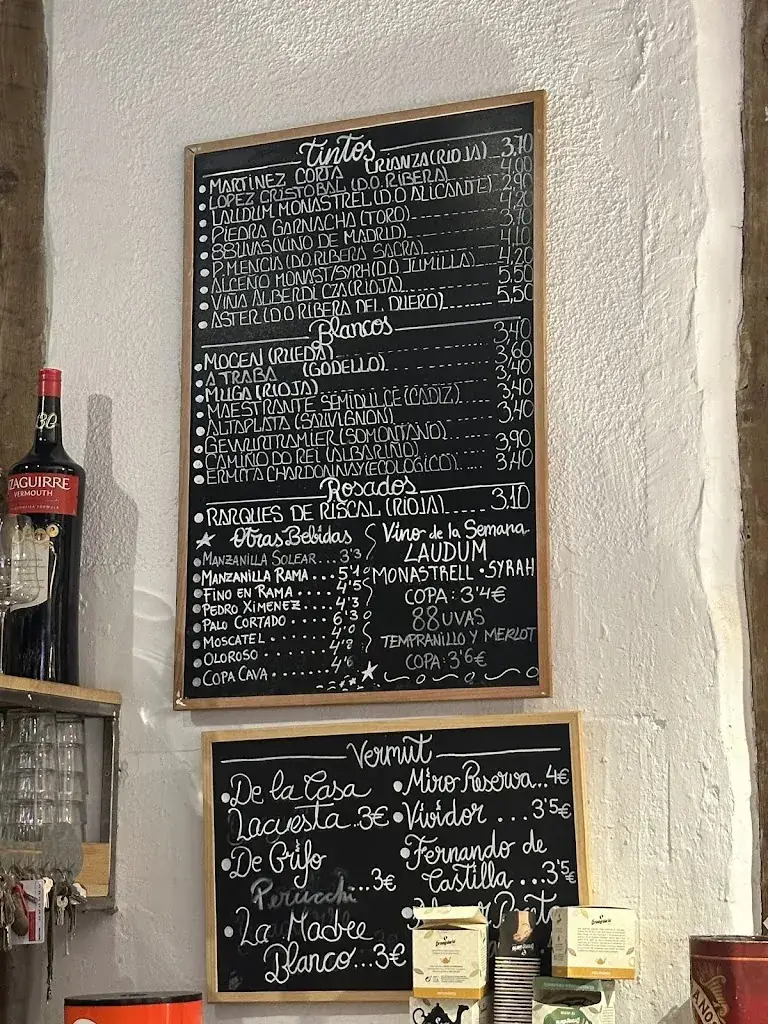 Tintos
MARTINEZ CORTA CRIANZA (RIOJA) 3,70
LOPEZ CRISTOBAL (D.O. RIBERA) 4,00
LAUDUM MONASTREL (D.O ALICANTE) 2,90
PIEDRA GARNACHA (TORO) 4,20
88UVAS (VINO DE MADRID) 3,70
P.MENCIA (DO RIBERA SACRA) 4,10
ALCEÑO MONAST/SYRH (D.O JUMILLA) 4,20
VIÑA ALBERDI CZA (RIOJA) 5,50
ASTER (D.O RIBERA DEL DUERO) 5,50
Blancos
MOCEN (RUEDA) 3,40
A TRABA (GODELLO) 3,60
MUGA (RIOJA) 3,40
MAESTRANTE SEMIDULCE (CADIZ) 3,40
ALTAPLATA (SAUVIGNON) 3,40
GEWURTRAMIER (SOMONTANO)
CAMIÑO DO REI (ALBARIÑO) 3,90
ERMITA CHARDONNAY (ECOLÓGICO) 3,40
Rosados
RARQUES DE RISCAL (RIOJA) 3,10
Otras Bebidas
MANZANILLA SOLEAR... 3'3
MANZANILLA RAMA... 5'1
FINO EN RAMA..... 4'5
PEDRO XIMENEZ..... 4'3
PALO CORTADO..... 6'3
MOSCATEL........ 4'0
OLOROSO........ 4'8
COPA CAVA....... 4'6
Vino de la Semana
LAUDUM
MONASTRELL • SYRAH
COPA: 3'4€
88UVAS
TEMPRANILLO Y MERLOT
COPA: 3'6€
Vermut
De la Casa
Lacuesta..3€
De Grifo
Perucchi
...3€
La Madre
Blanco...3€
Miro Reserva..4€
Vividor...3'5€
Fernando de
Castilla...3'5€
ZAGUIRRE
VERMOUTH